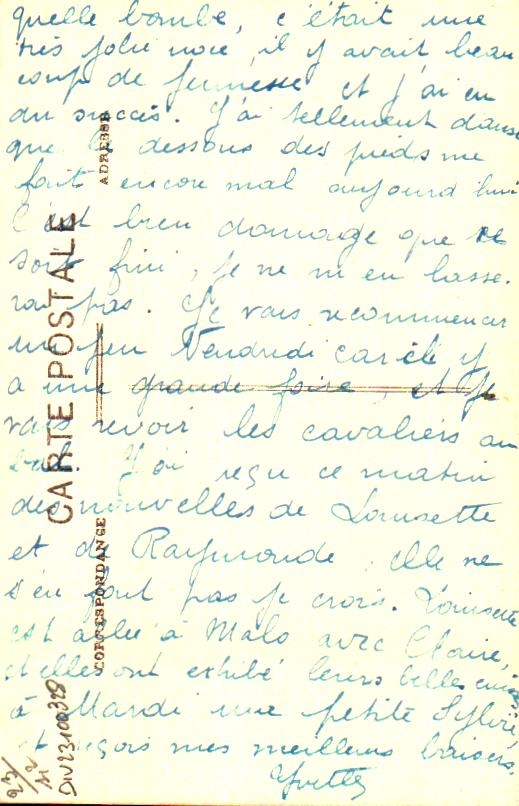 quelle bombe, c'était une
très jolie noce, il y avait beau
coup de jeunesse et j'ai eu
du succès. J'ai tellement dansé
que le dessous des pieds me
fait encore mal aujourd'hui
C'est bien domage que ce
soit fini, je ne m'en lasse.
rai pas. Je vais recommencer
un peu Vendredi car il y
a une grande foire, et je
vais revoir les cavaliers au
bal. J'ai reçu ce matin
des nouvelles de Louisette
et de Raymonde, elle ne
s'en font pas je crois. Louisette
est allée à Malo avec Claire,
et elles ont exhibé leurs belles
à Mardi une petite Sylvie,
et reçois mes meilleurs baisers.
Yvette
CARTE POSTALE
CORRESPONDANCE
ADRESSE
DIV23100328